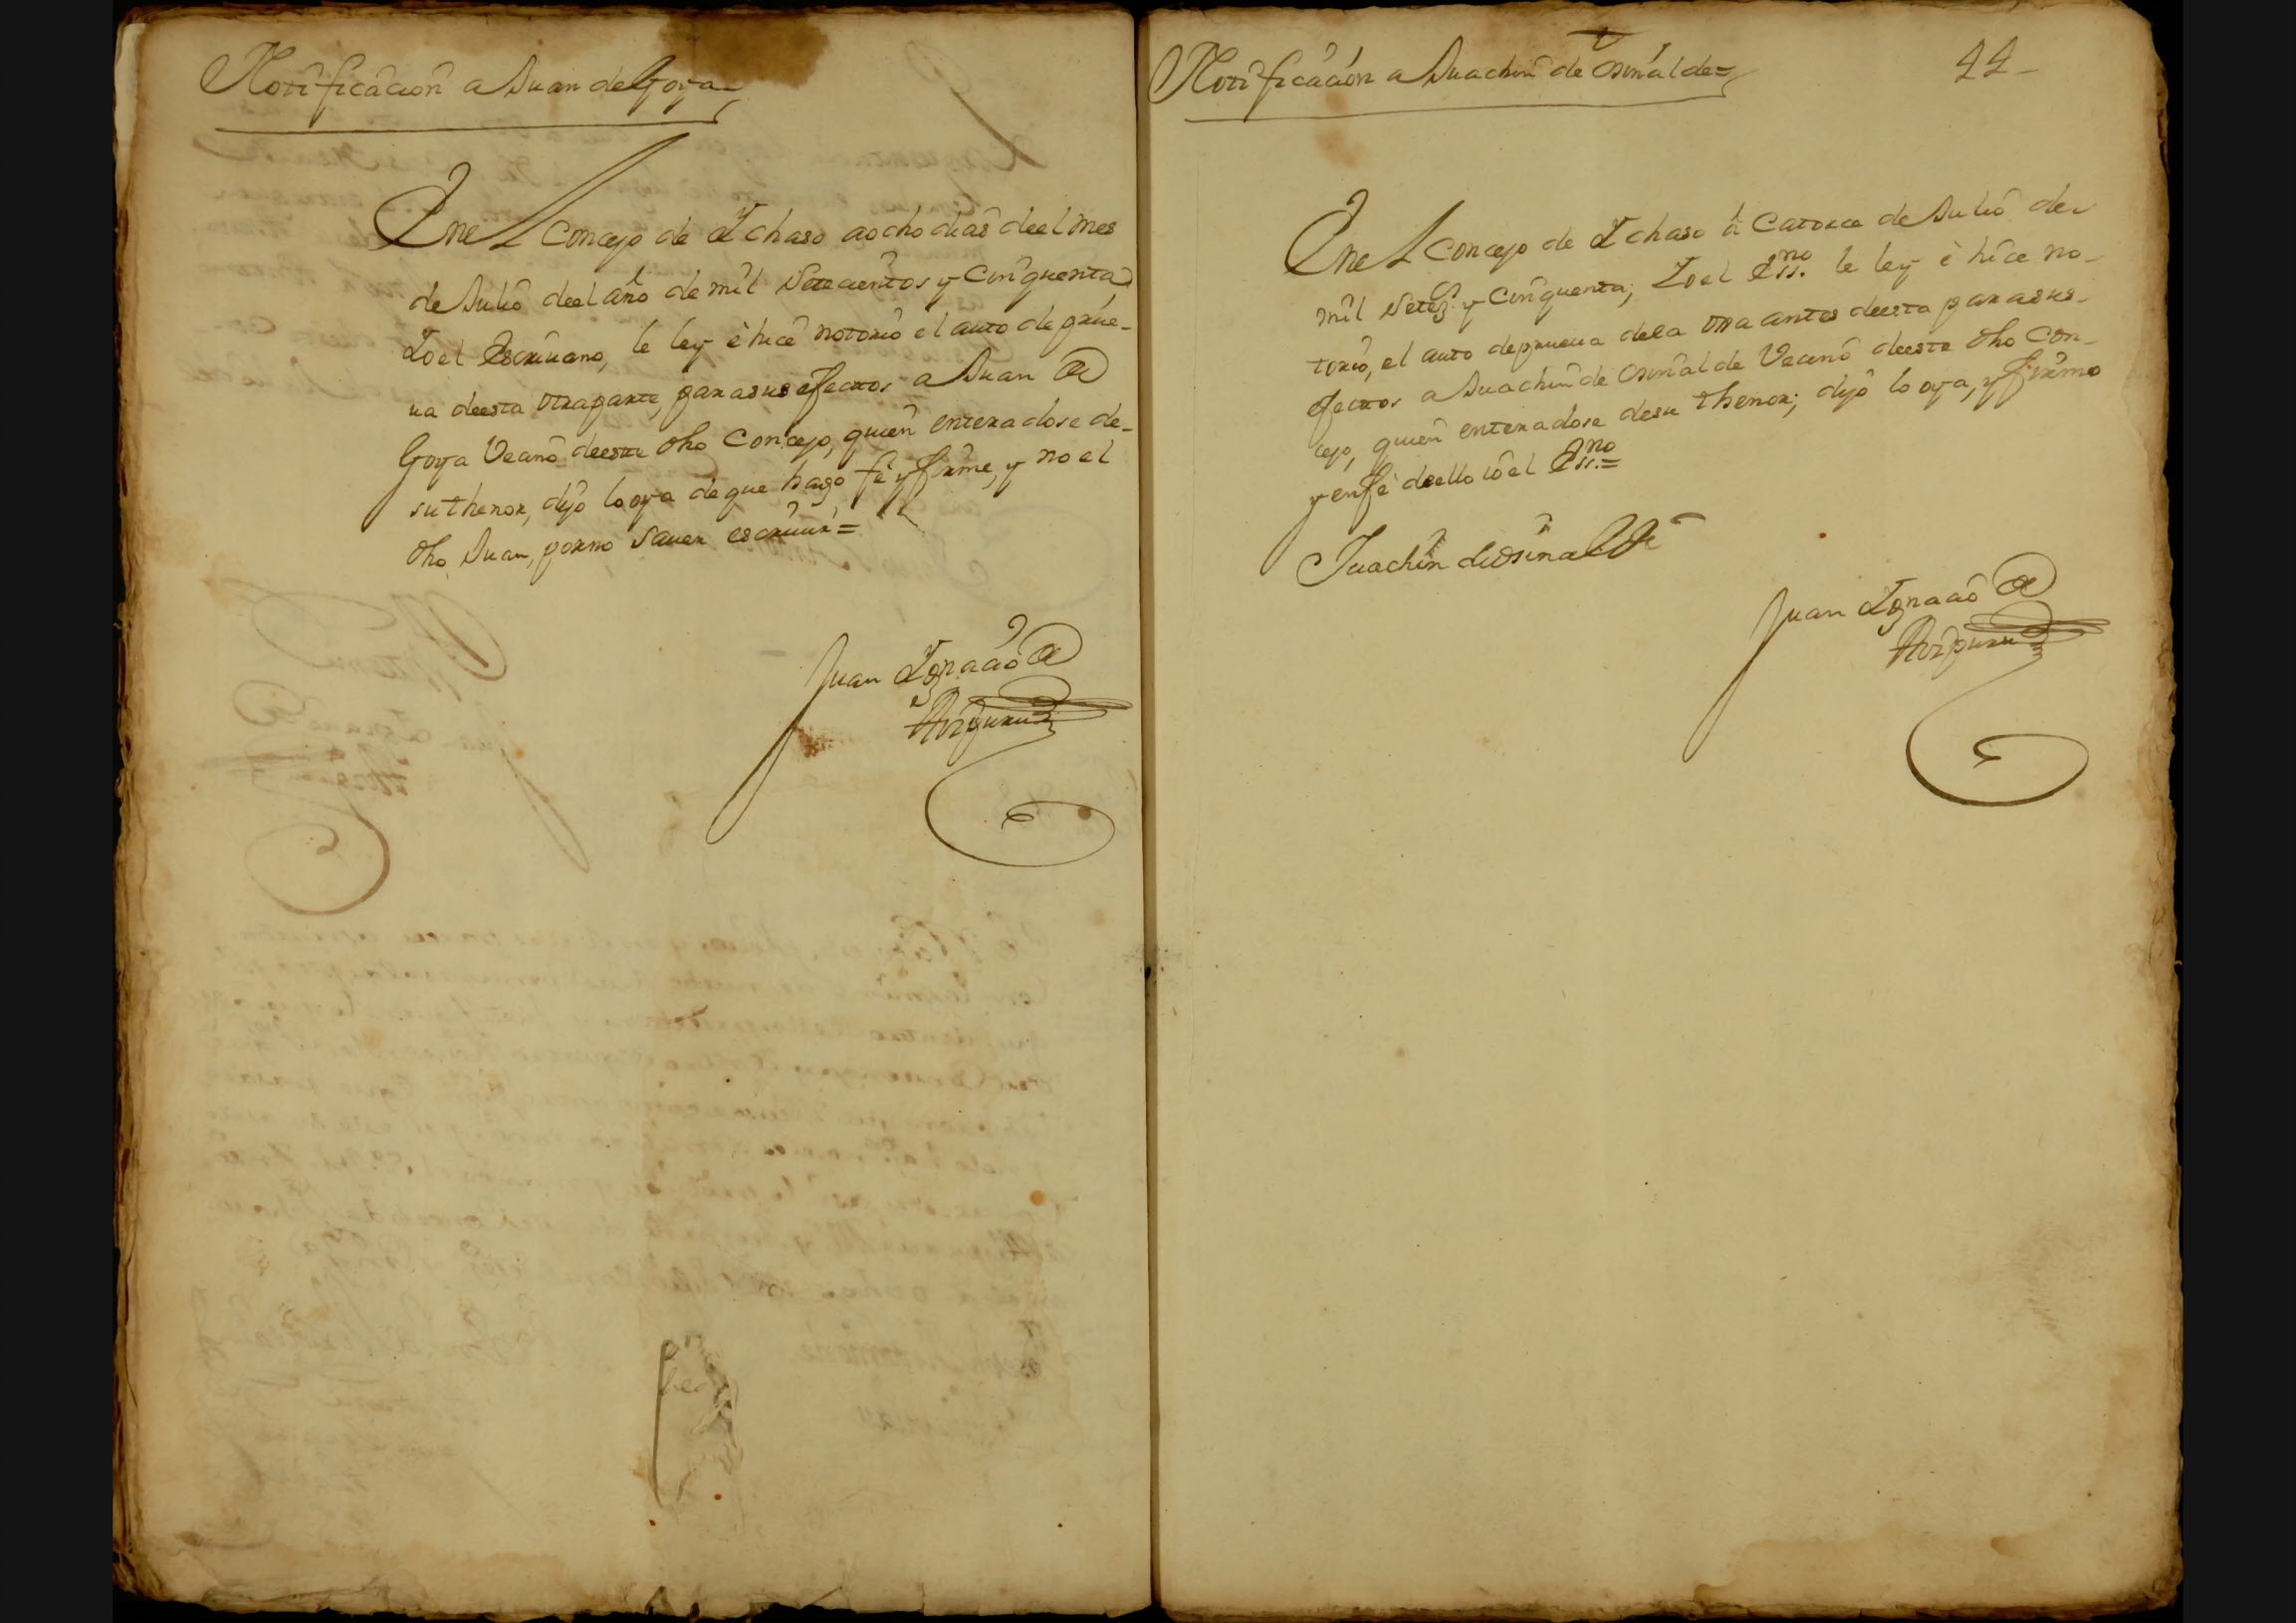 Notificacion a Juan de Goya
Enel concejo de Ychaso a ocho dias deel mes
de Julio deel año de mil Setecientos y Cinquenta,
Yo el Escriuano, le ley è hice notorio el auto de prue-
ua deesta otra parte, para sus efectos a Juan de
Goya Vecino deeste dho Concejo, quien enteradose de-
su thenor, dijo lo oya de que hago fè y firme, y no el
dho Juan, por no Sauer escriuir=
Juan Ygnacio de
Aizpuru
Notificacion a Juachin de Osinalde=
44-
Enel Concejo de Ychaso à Catorce de Julio de
mil Setez.s y Cinquenta; Yo el Ess.no le ley è hice no-
torio, el auto de prueua dela otra antes deesta para sus-
efectos a Juachin de Osinalde Vecino deeste dho Con-
cejo, quien enteradose desu thenor; dijo lo oya, y firmo
y enfè deello io el Ess.no=
Juachin de osinalde
Juan Ygnacio de
Aizpuru